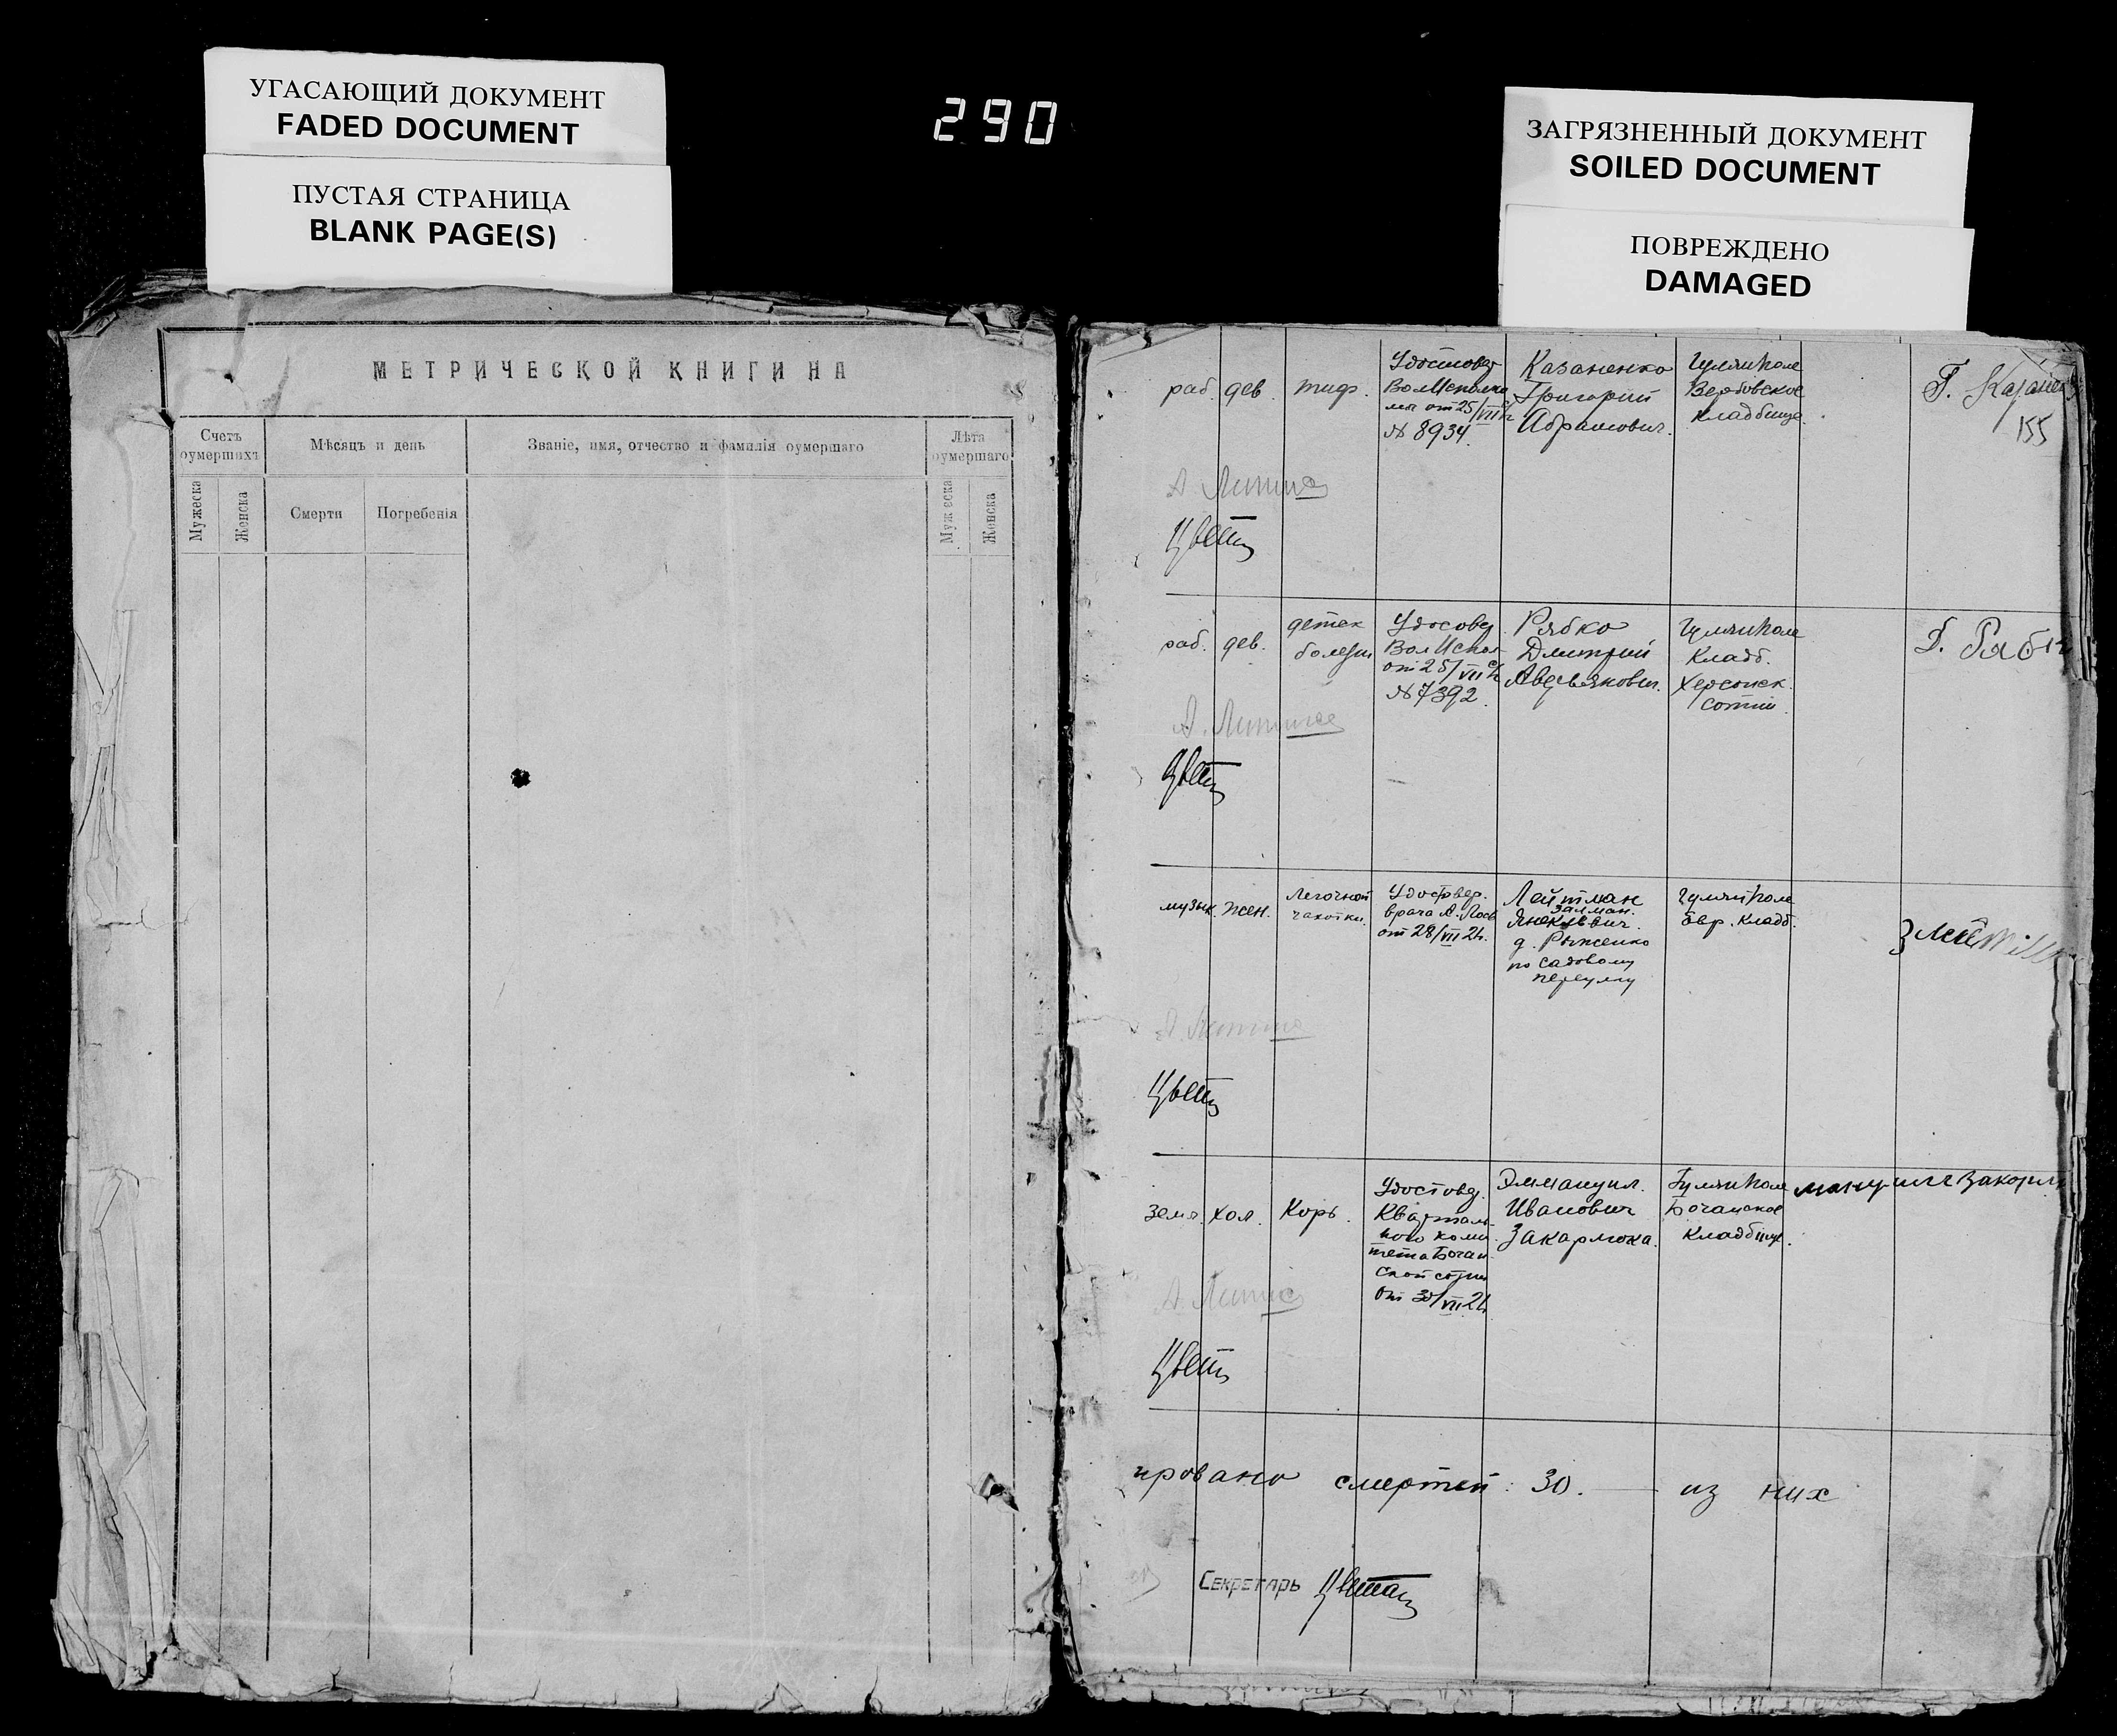 УГАСАЮЩИЙ ДОКУМЕНТ
FADED DOCUMENT
ПУСТАЯ СТРАНИЦА
BLANK PAGE(S)
290
ЗАГРЯЗНЕННЫЙ ДОКУМЕНТ
SOILED DOCUMENT
ПОВРЕЖДЕНО
DAMAGED
МЕТРИЧЕСКОЙ КНИГИ НА
Счетъ
оумершихъ
Мѣсяцъ и день
Званіе, имя, отчество и фамилія оумершаго
Лѣта
оумершаго
Мужеска
Женска
Смерти
Погребенія
Мужеска
Женска
раб.
дев.
тиф.
от 25/VII
№ 8934.
Казаненко
Григорий
Абрамович.
Гуляй Поле
Вербовское
кладбище.
Г. Казанен
155
раб.
дев.
детск
болезни
Удосовер
от 25/VII
№ 7392.
Рябко
Дмитрий
Гуляй Поле
Кладб.
Херсонск.
сотни.
Д. Рябк
музык.
жен.
Легочной
чахотки.
врача
от 28/VII 24.
Лейтман
Залман.
д. Рыженко
по садовому
переулку
Гуляй Поле
Евр. Кладб.
земл.
хол.
Корь.
Удостовер.
Кварталь-
ного коми-
тета Бочан
ской сотни
от 30/VII 24
Эммануил.
Иванович
Закарлюка.
Гуляй Поле
Бочанское
Кладбище.
ировано смертей: 30. — из них
Секретарь